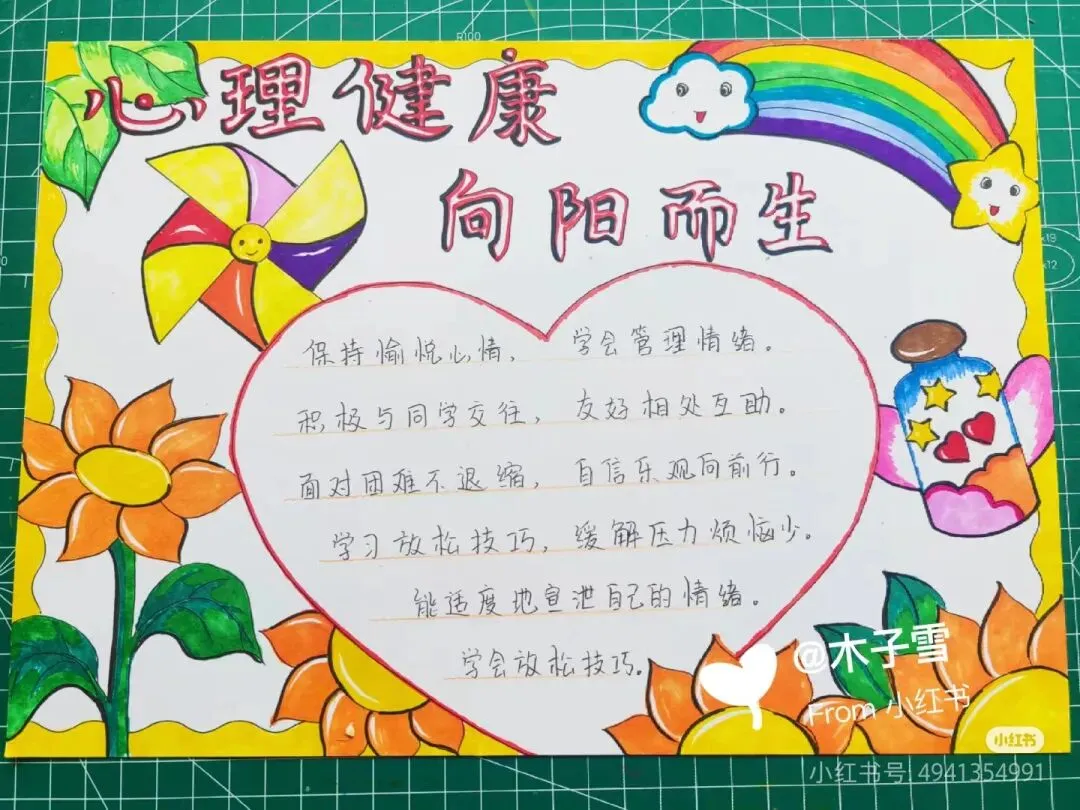 心理健康
向阳而生
保持愉悦心情， 学会管理情绪。
积极与同学交往， 友好相处互助。
面对困难不退缩， 自信乐观向前行。
学习放松技巧， 缓解压力烦恼少。
能适度地宣泄自己的情绪。
学会放松技巧。
@木子雪
From 小红书
小红书
小红书号 4941354991